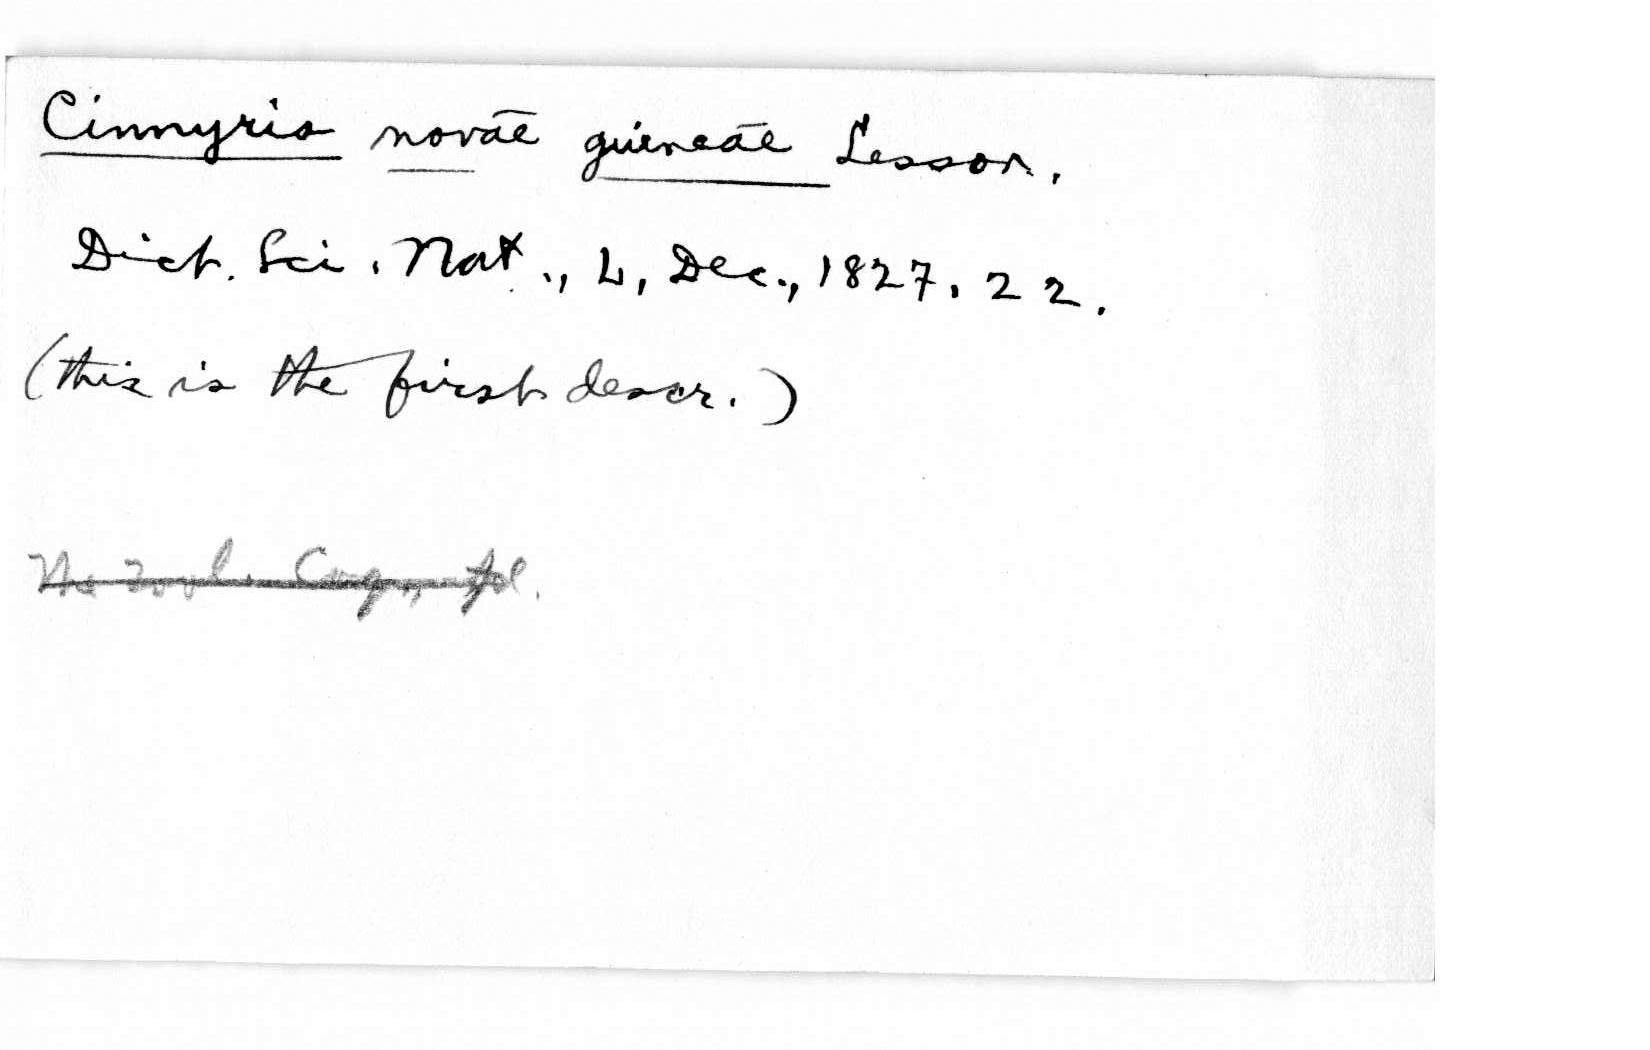 Cinnyris novāē guineāē Lesson.
Dict. Sci. Nat., L, Dec., 1827, 22.
(this is the first descr.)
Zool. Coq., pl.